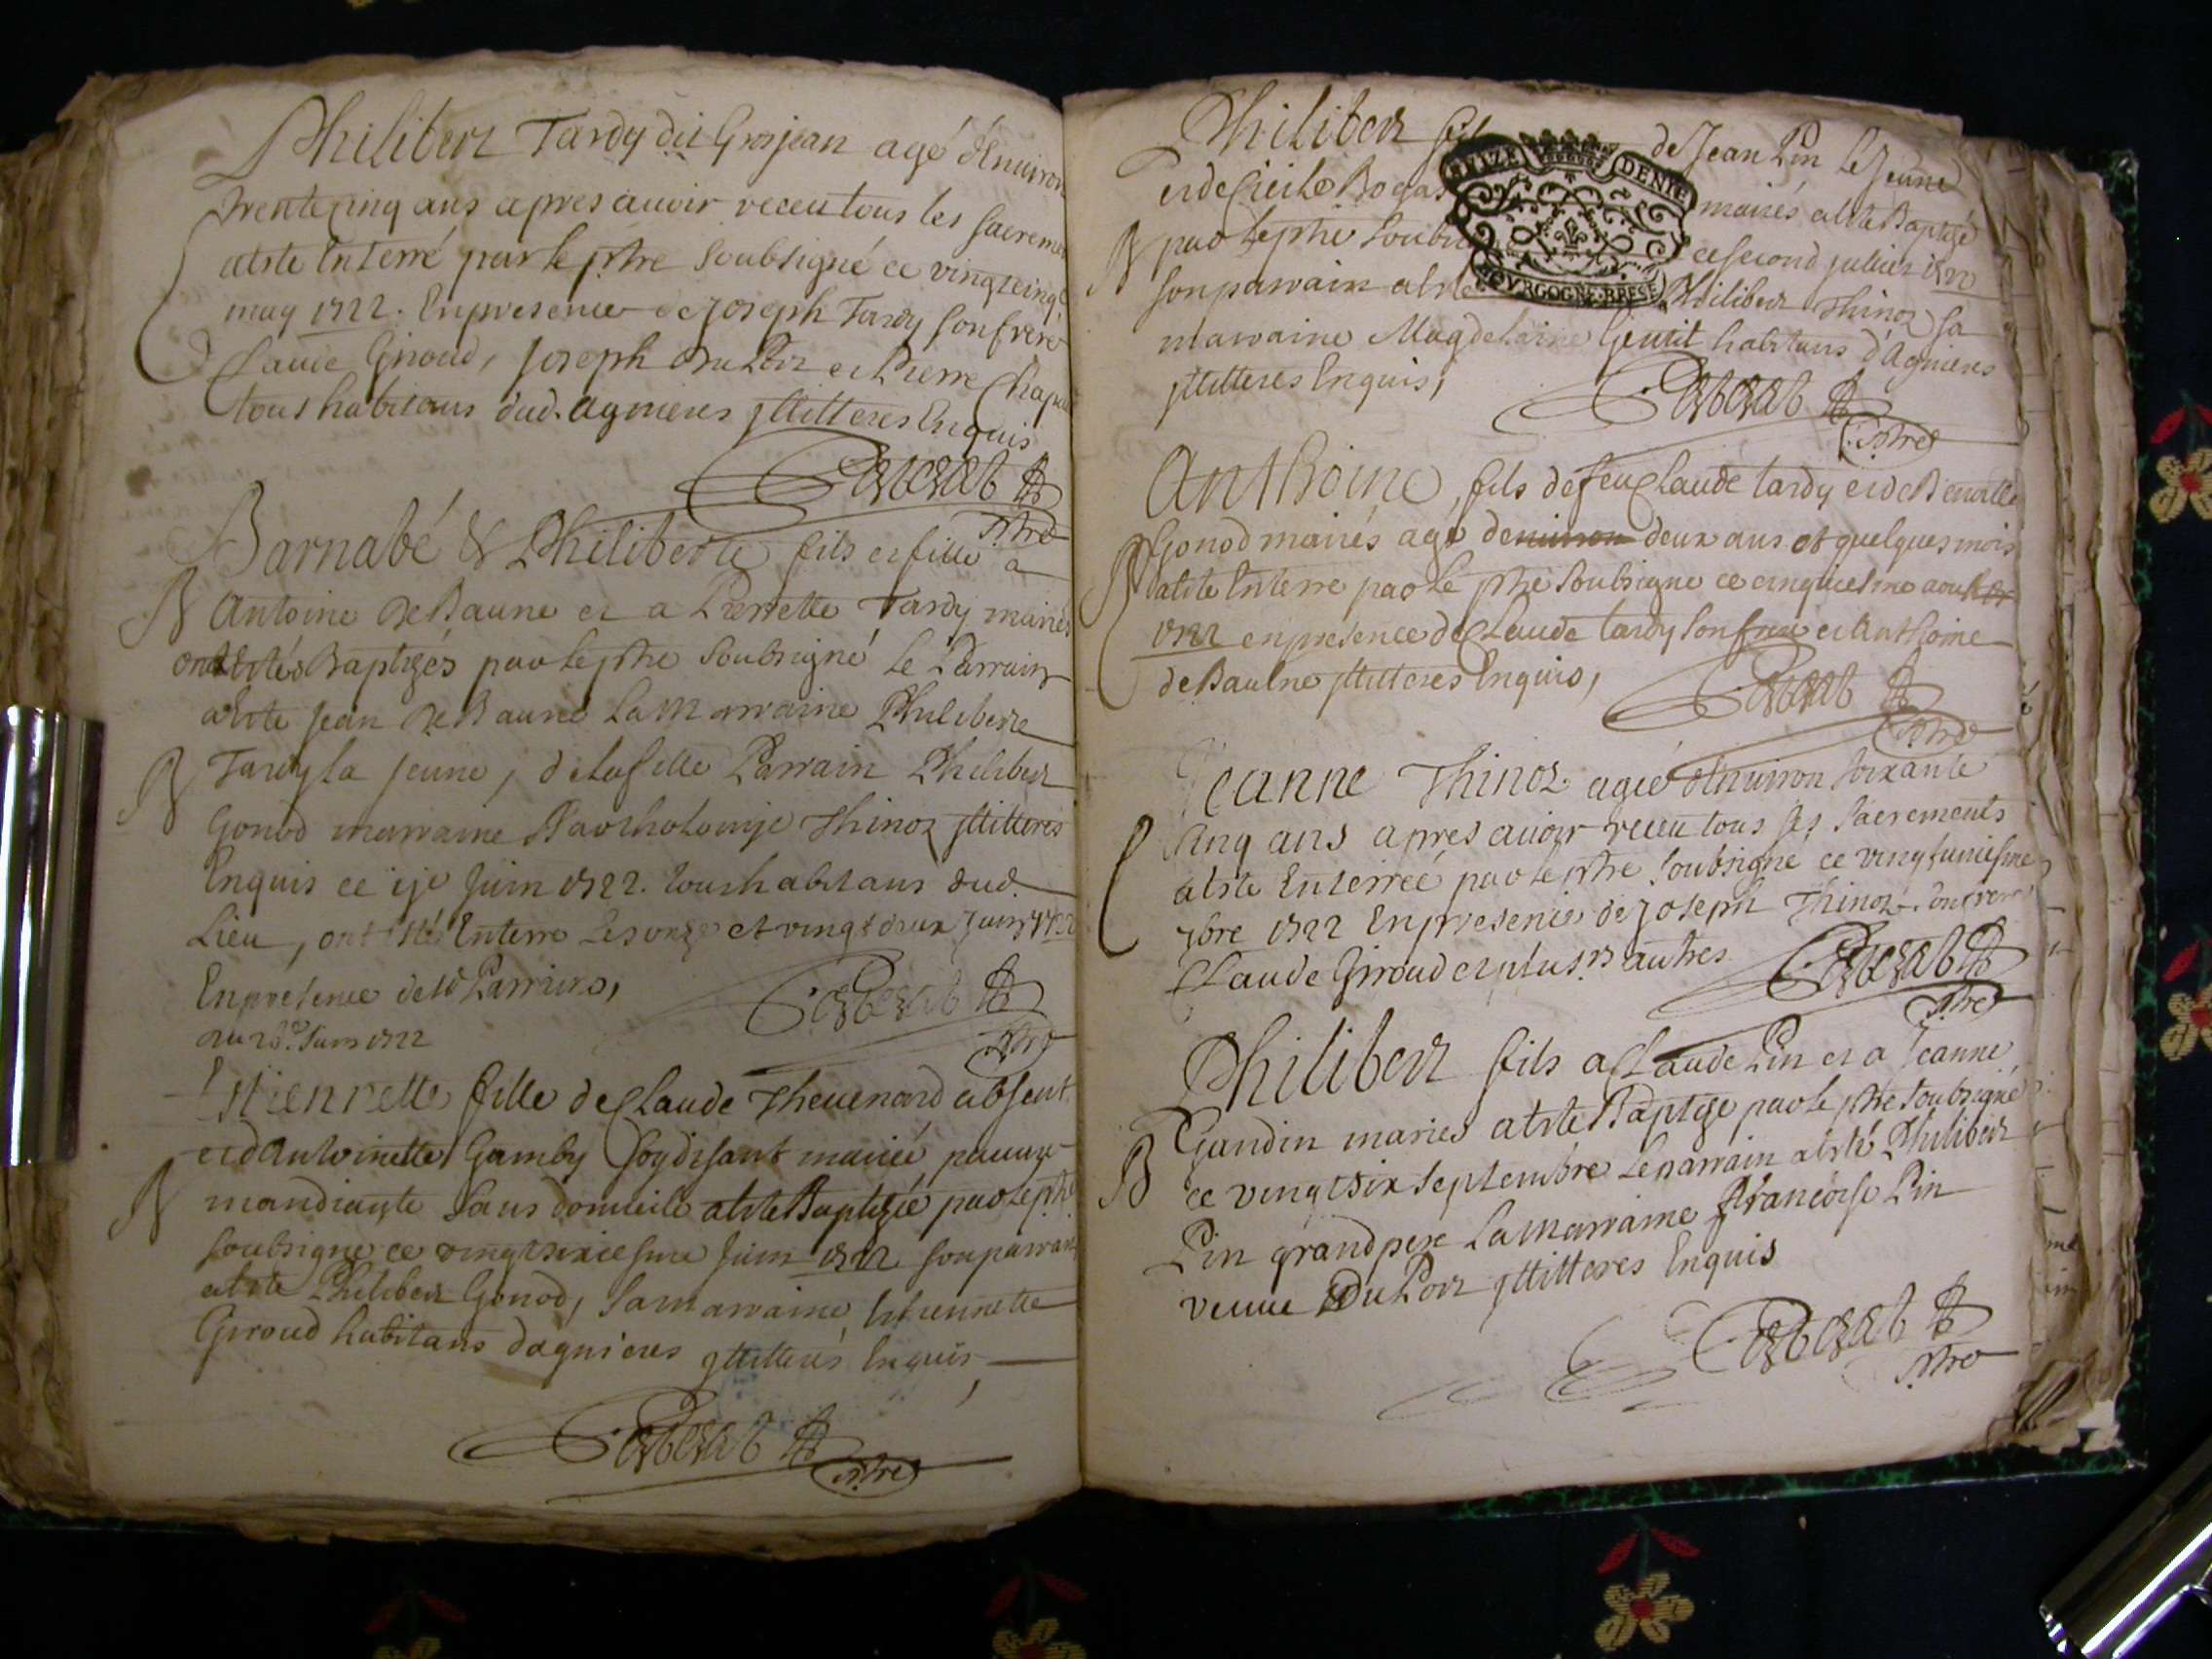 Philibert Tardy dit Grosjean agé d'Enuiron
trente cinq ans apres auoir receu tous les sacremen
a esté Enterré par le pbre soubsigné ce vingtcinq
may 1722. Enpresence de Joseph Tardy son frere
Claude Giroud, Joseph Du Por et Pierre Chapu
tous habitans dud. agnieres Illitteres Enquis
pbre
Barnabé & Philiberte fils et fille a
B Antoine DeBaune et a Pierrette Tardy mariés
ont estés Baptizés par le pbre soubsigné Le Parrain
a esté Jean DeBaune La Marraine Philiberte
B Tardy la Jeune, de la fille Parrain Philibert
Gonod marraine Bartholomye Thinoz Illitteres
Enquis ce Juin 1722. tous habitans dud.
Lieu, ont estés Enterre Les onze et vingt deux Juin 1722
Enpresence desd Parrains,
du 26e. Juin 1722
pbre
Estiennette fille de Claude Theuenard absent
et d'Antoinette Gamby soy disant mariée pauure
B mandiante sans domicile a esté Baptizée par le pbre
soubsigne ce vingtsixiesme Juin 1722 son parrain
a esté Philibert Gonod, sa marraine Estiennette
Giroud habitans dagnieres Illitterés Enquis,
pbre
Philibert fils de Jean Pin le Jeune
SEIZE DENIE
et de Cecile Bogas mariés a esté Baptizé
B par le pbre soubsi ce second Juillet 1722
BOVRGOGNE·BRESE
son parrain a esté Philibert Thinoz sa
marraine Magdelaine Gentit habitans d'Agnieres
Illitteres Enquis,
pbre
Anthoine fils de feu Claude tardy et de Benoitte
Gonod mariés agé denuiron deux ans et quelques mois
a esté Enterre par le pbre soubsigne ce cinquiesme aoust
1722 en presence de Claude tardy son frere et Anthoine
de Baulne Illitteres Enquis,
pbre
Jeanne Thinoz agée d'Enuiron soixante
cinq ans apres auoir receu tous ses sacrements
a esté Enterrée par le pbre soubsigné ce vingtuniesme
7bre 1722 Enpresence de Joseph Thinoz son frere
Claude Giroud et plus.rs autres
pbre
Philibert fils a Claude Pin et a Jeanne
Gandin mariés a esté Baptizé par le pbre soubsigné
B ce vingtsix septembre Le parrain a esté Philibert
Pin grand pere La Marraine Francoise Pin
veuue DuPorz Illitteres Enquis
pbre